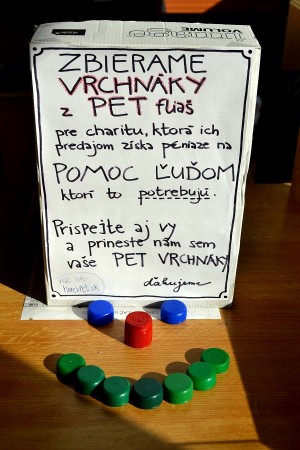 VOLUME
ZBIERAME
VRCHNÁKY
z PET fliaš
pre charitu, ktorá ich
predajom získa peniaze na
POMOC ĽUĎOM
ktorí to potrebujú.
Prispejte aj vy
a prineste nám sem
vaše PET VRCHNÁKY
ďakujeme